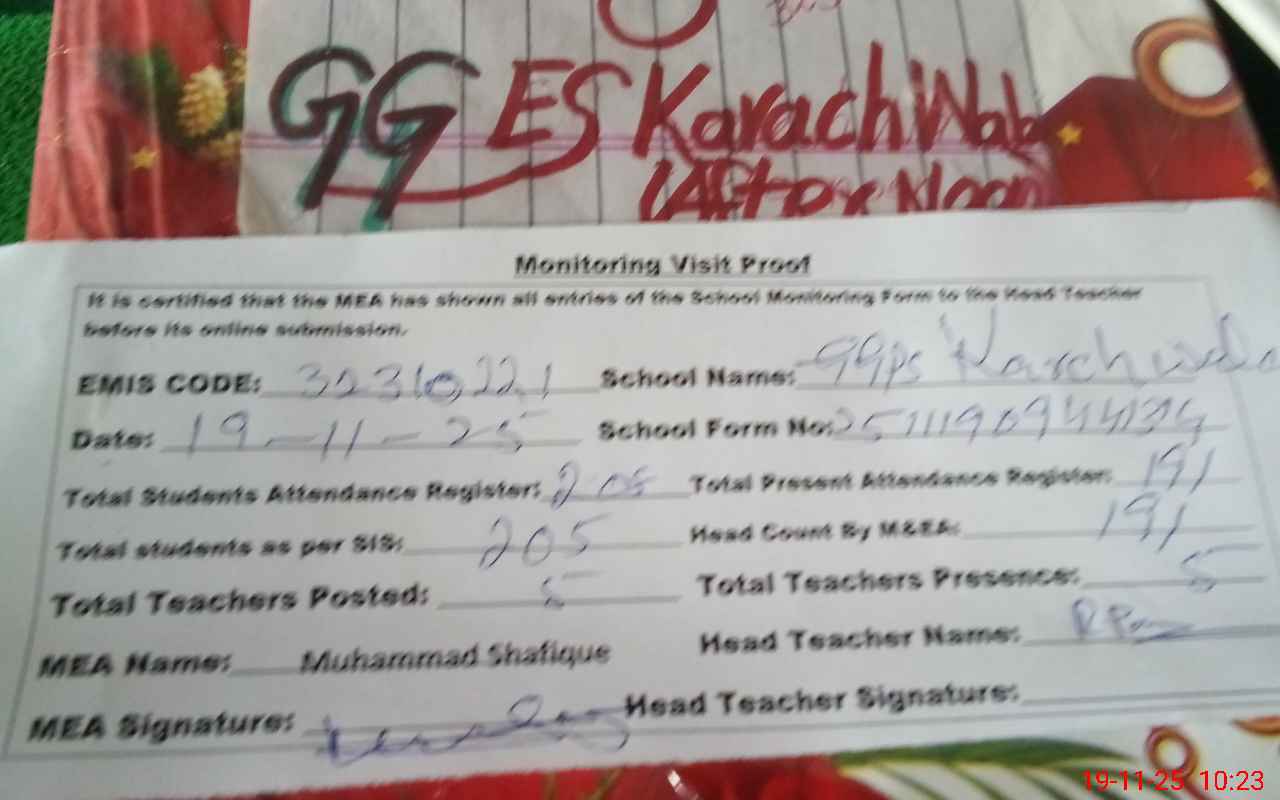 GGES Karachi Wala
(After Noon
Monitoring Visit Proof
It is certified that the MEA has shown all entries of the School Monitoring Form to the Head Teacher
before its online submission.
EMIS CODE: 32310221 School Name: GGPS Karachi wala
Date: 19-11-25 School Form No:
Total Students Attendance Register: 205 Total Present Attendance Register: 191
Total students as per SIS: 205 Head Count By M&EA: 191
Total Teachers Posted: 5 Total Teachers Presence: 5
MEA Name: Muhammad Shafique Head Teacher Name:
MEA Signature: Head Teacher Signature:
19-11-25 10:23